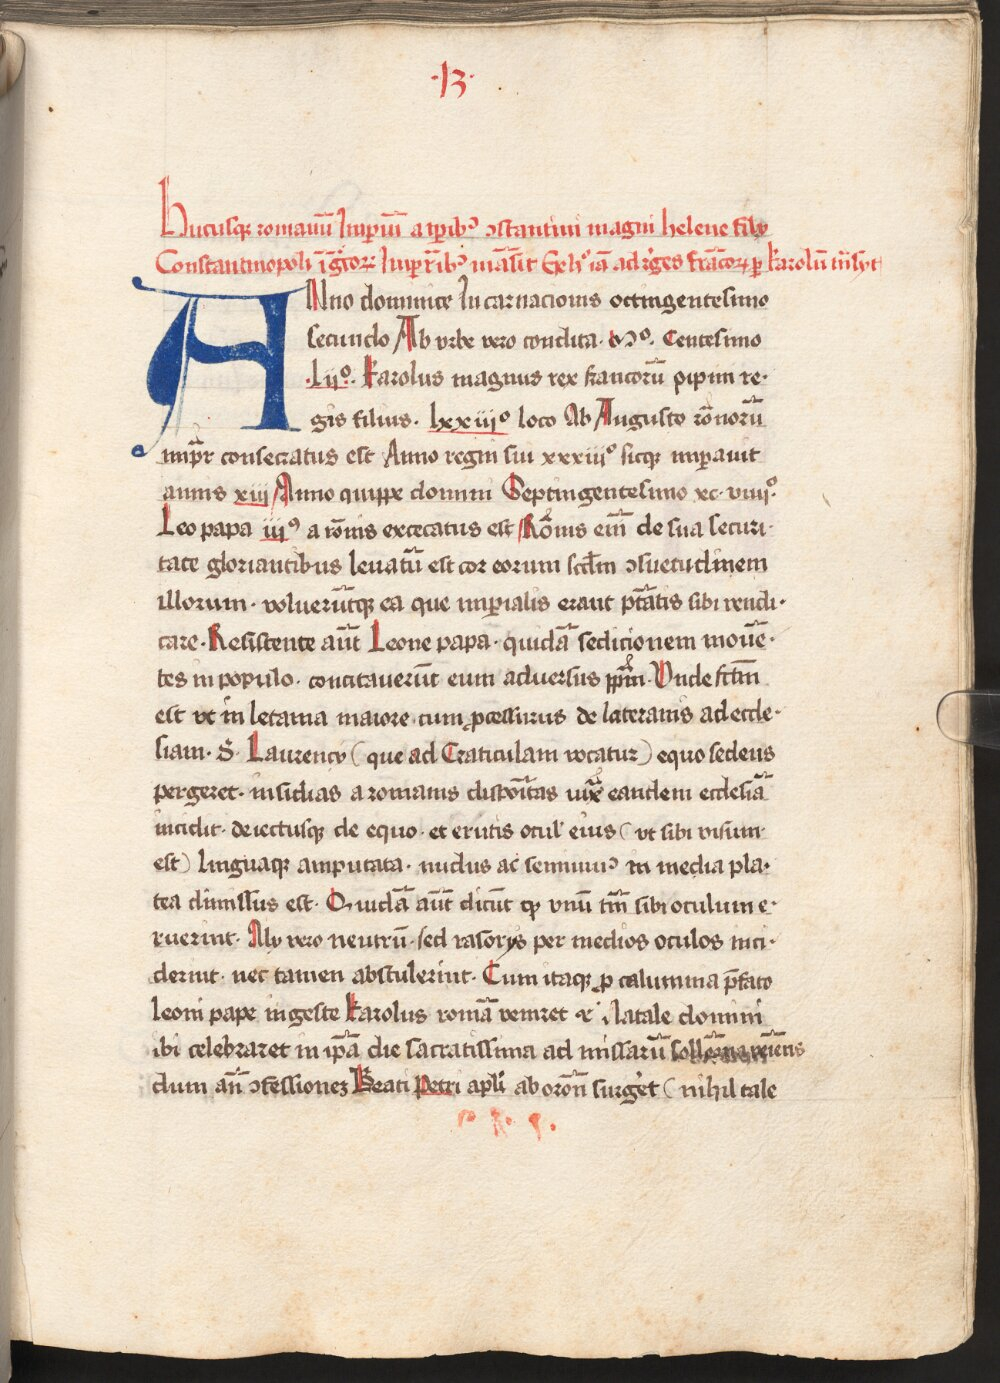 ·13·
Hucusq; romanū Imperiū a tp̄ib9 ɔstantini magni helene filii
Constantinopoli ī grecor; Imp̄rib9 māsit Exh9 iā ad reges francor; per karolū trāsijt
ANno dominice Incarnacionis octingentesimo
secundo Ab vrbe vero condita. Centesimo
·Lijº· Karolus magnus rex francorū pipini re-
gis filius· lxxiijº loco Ab Augusto rōnorū
imp̄r consecratus est Anno regni sui xxxiiiº sicq; imperauit
annis xiij Anno quippe domini Septingentesimo xc·viiijº
Leo papa iijº a rōnis excecatus est Rōnis em̄ de sua securi-
tate gloriantibus leuatū est cor eorum scd̄m ɔsuetudinem
illorum· voluerūtq; ea que imperialis erant ptātis sibi vendi-
care· Resistente aūt Leone papa· quidā sedicionem mouē-
tes in populo· concitauerūt eum aduersus pp̄m· Vnde fctm̄
est vt in letania maiore cum pcessurus de lateranis ad eccle-
siam· S· Laurency (que ad Craticulam vocatur) equo sedens
pergeret· insidias a romanis dispoītas iuxͣ eandem ecclesiā
incidit· deiectusq; de equo· et erutis ocul' eius (vt sibi visum
est) linguaq; amputata· nudus ac semiuiu9 in media pla-
tea dimissus est· Quidā aūt dicūt qp vnū tm̄ sibi oculum e-
ruerint· Aly vero neutrū· sed rasorys per medios oculos inci-
derint· nec tamen abstulerint· Cum itaq; p calumnia p̄fato
Leoni pape ingeste Karolus romā veniret et Natale domini
ibi celebraret in ip̄a die sacratissima ad missarū veniens
dum an̄ ɔfessionez Beati Petri apli ab orōn surget (nihil tale